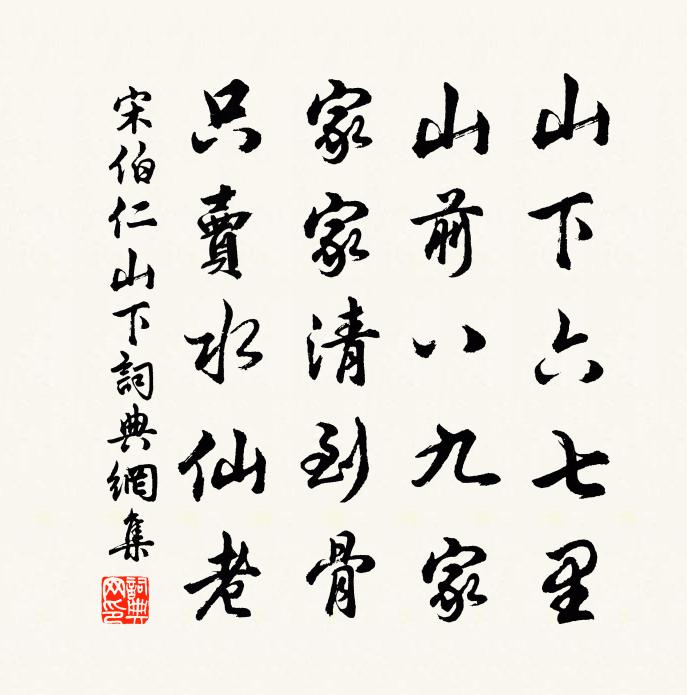 山下六七里
山前八九家
家家清到骨
只賣水仙老
宋伯仁山下詞典網集
詞典网印